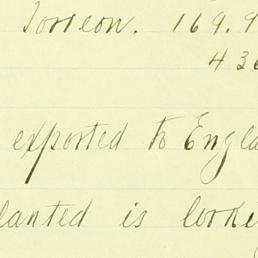 Torreon. 169.9
436
exported to Engla
lanted is looki